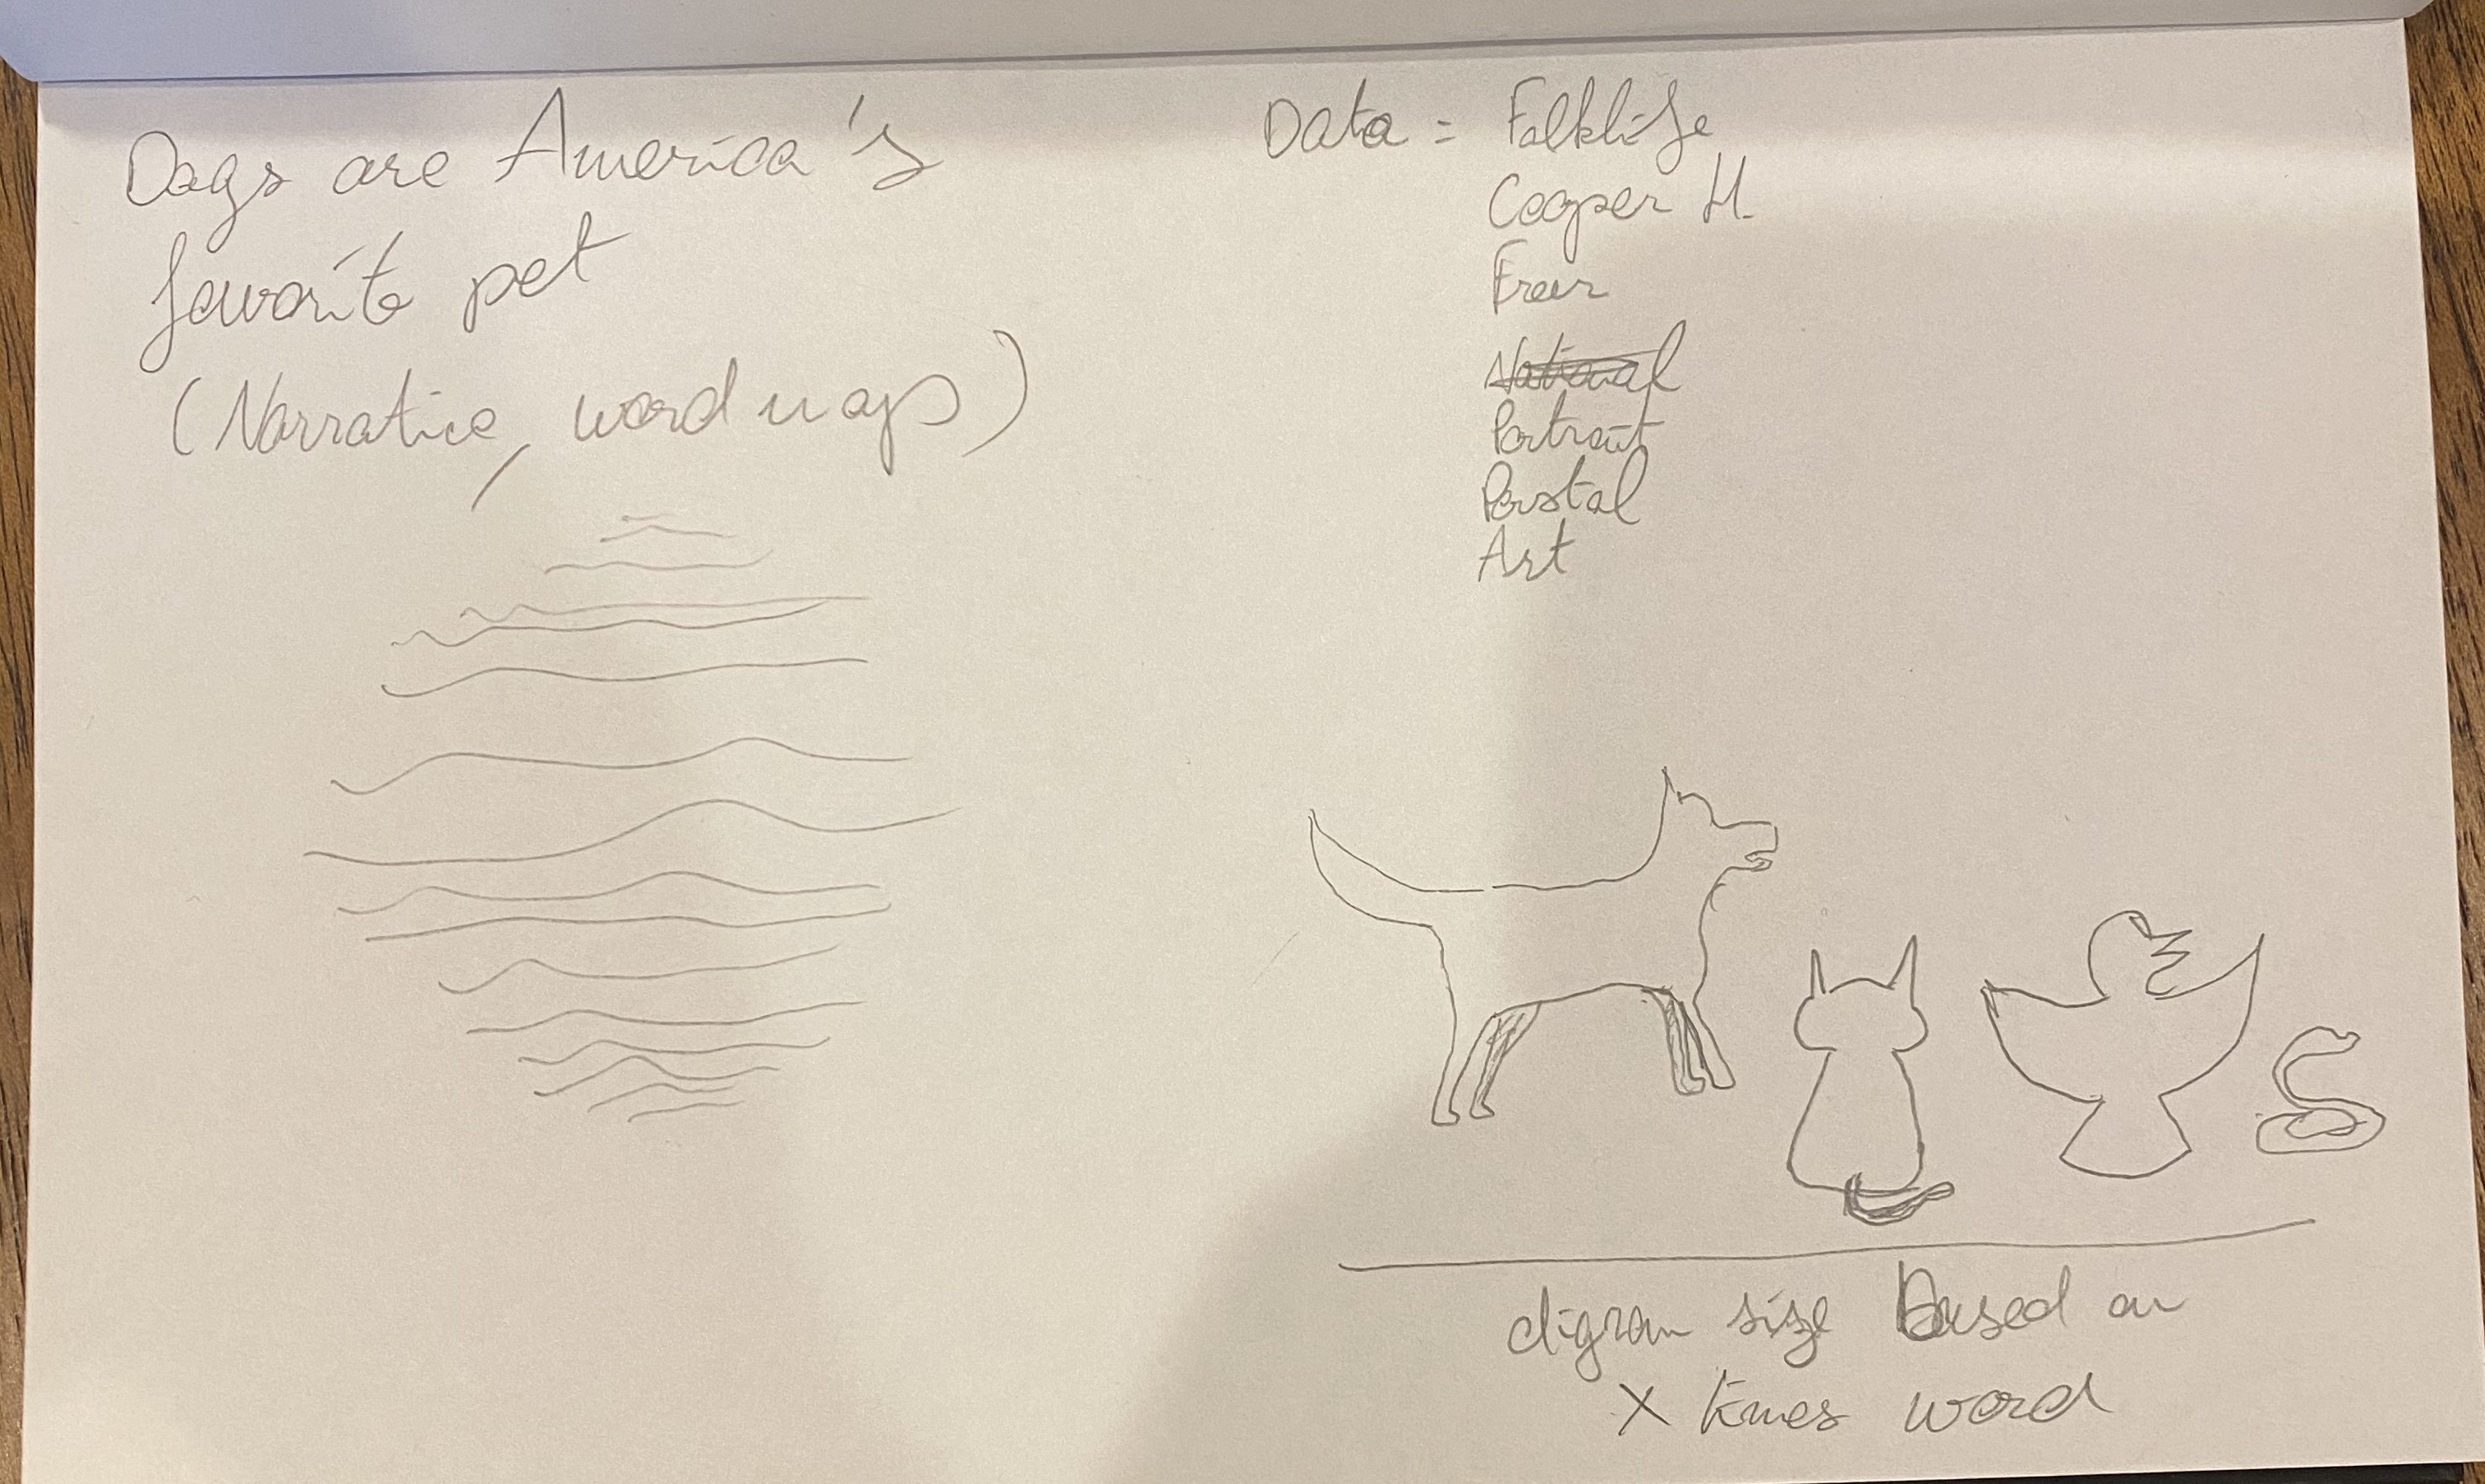 Dogs are America's
favorite pet
(Narrative, word maps)
Data = Folklife
Cooper H.
Freer
National
Portrait
Postal
Art
digram size Based on
X times word